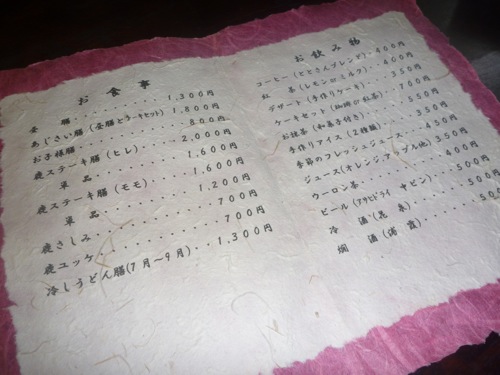 お食事
葵膳 1,300円
あじさい膳(葵膳とケーキセット) 1,800円
お子様膳 800円
鹿ステーキ膳(ヒレ) 2,000円
単品 1,600円
鹿ステーキ膳(モモ) 1,600円
単品 1,200円
鹿さしみ 700円
鹿ユッケ 700円
冷しうどん膳(7月〜9月) 1,300円
お飲み物
コーヒー(ととさんブレンド) 400円
紅茶(レモンorミルク) 400円
デザート(手作りケーキ) 350円
ケーキセット(珈琲or紅茶) 700円
お抹茶(和菓子付き) 550円
手作りアイス(2種類) 350円
季節のフレッシュジュース 450円
ジュース(オレンジ,アップル他) 400円
ウーロン茶 350円
ビール(アサヒドライ 中ビン) 500円
冷酒 500円
燗酒 500円